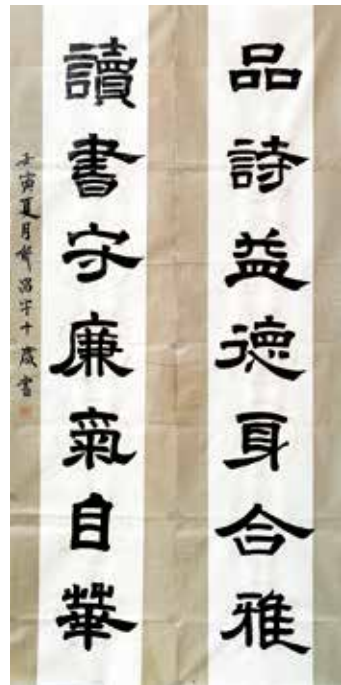 品詩益德身合雅
讀書守廉氣自華
壬寅夏月 十歲書